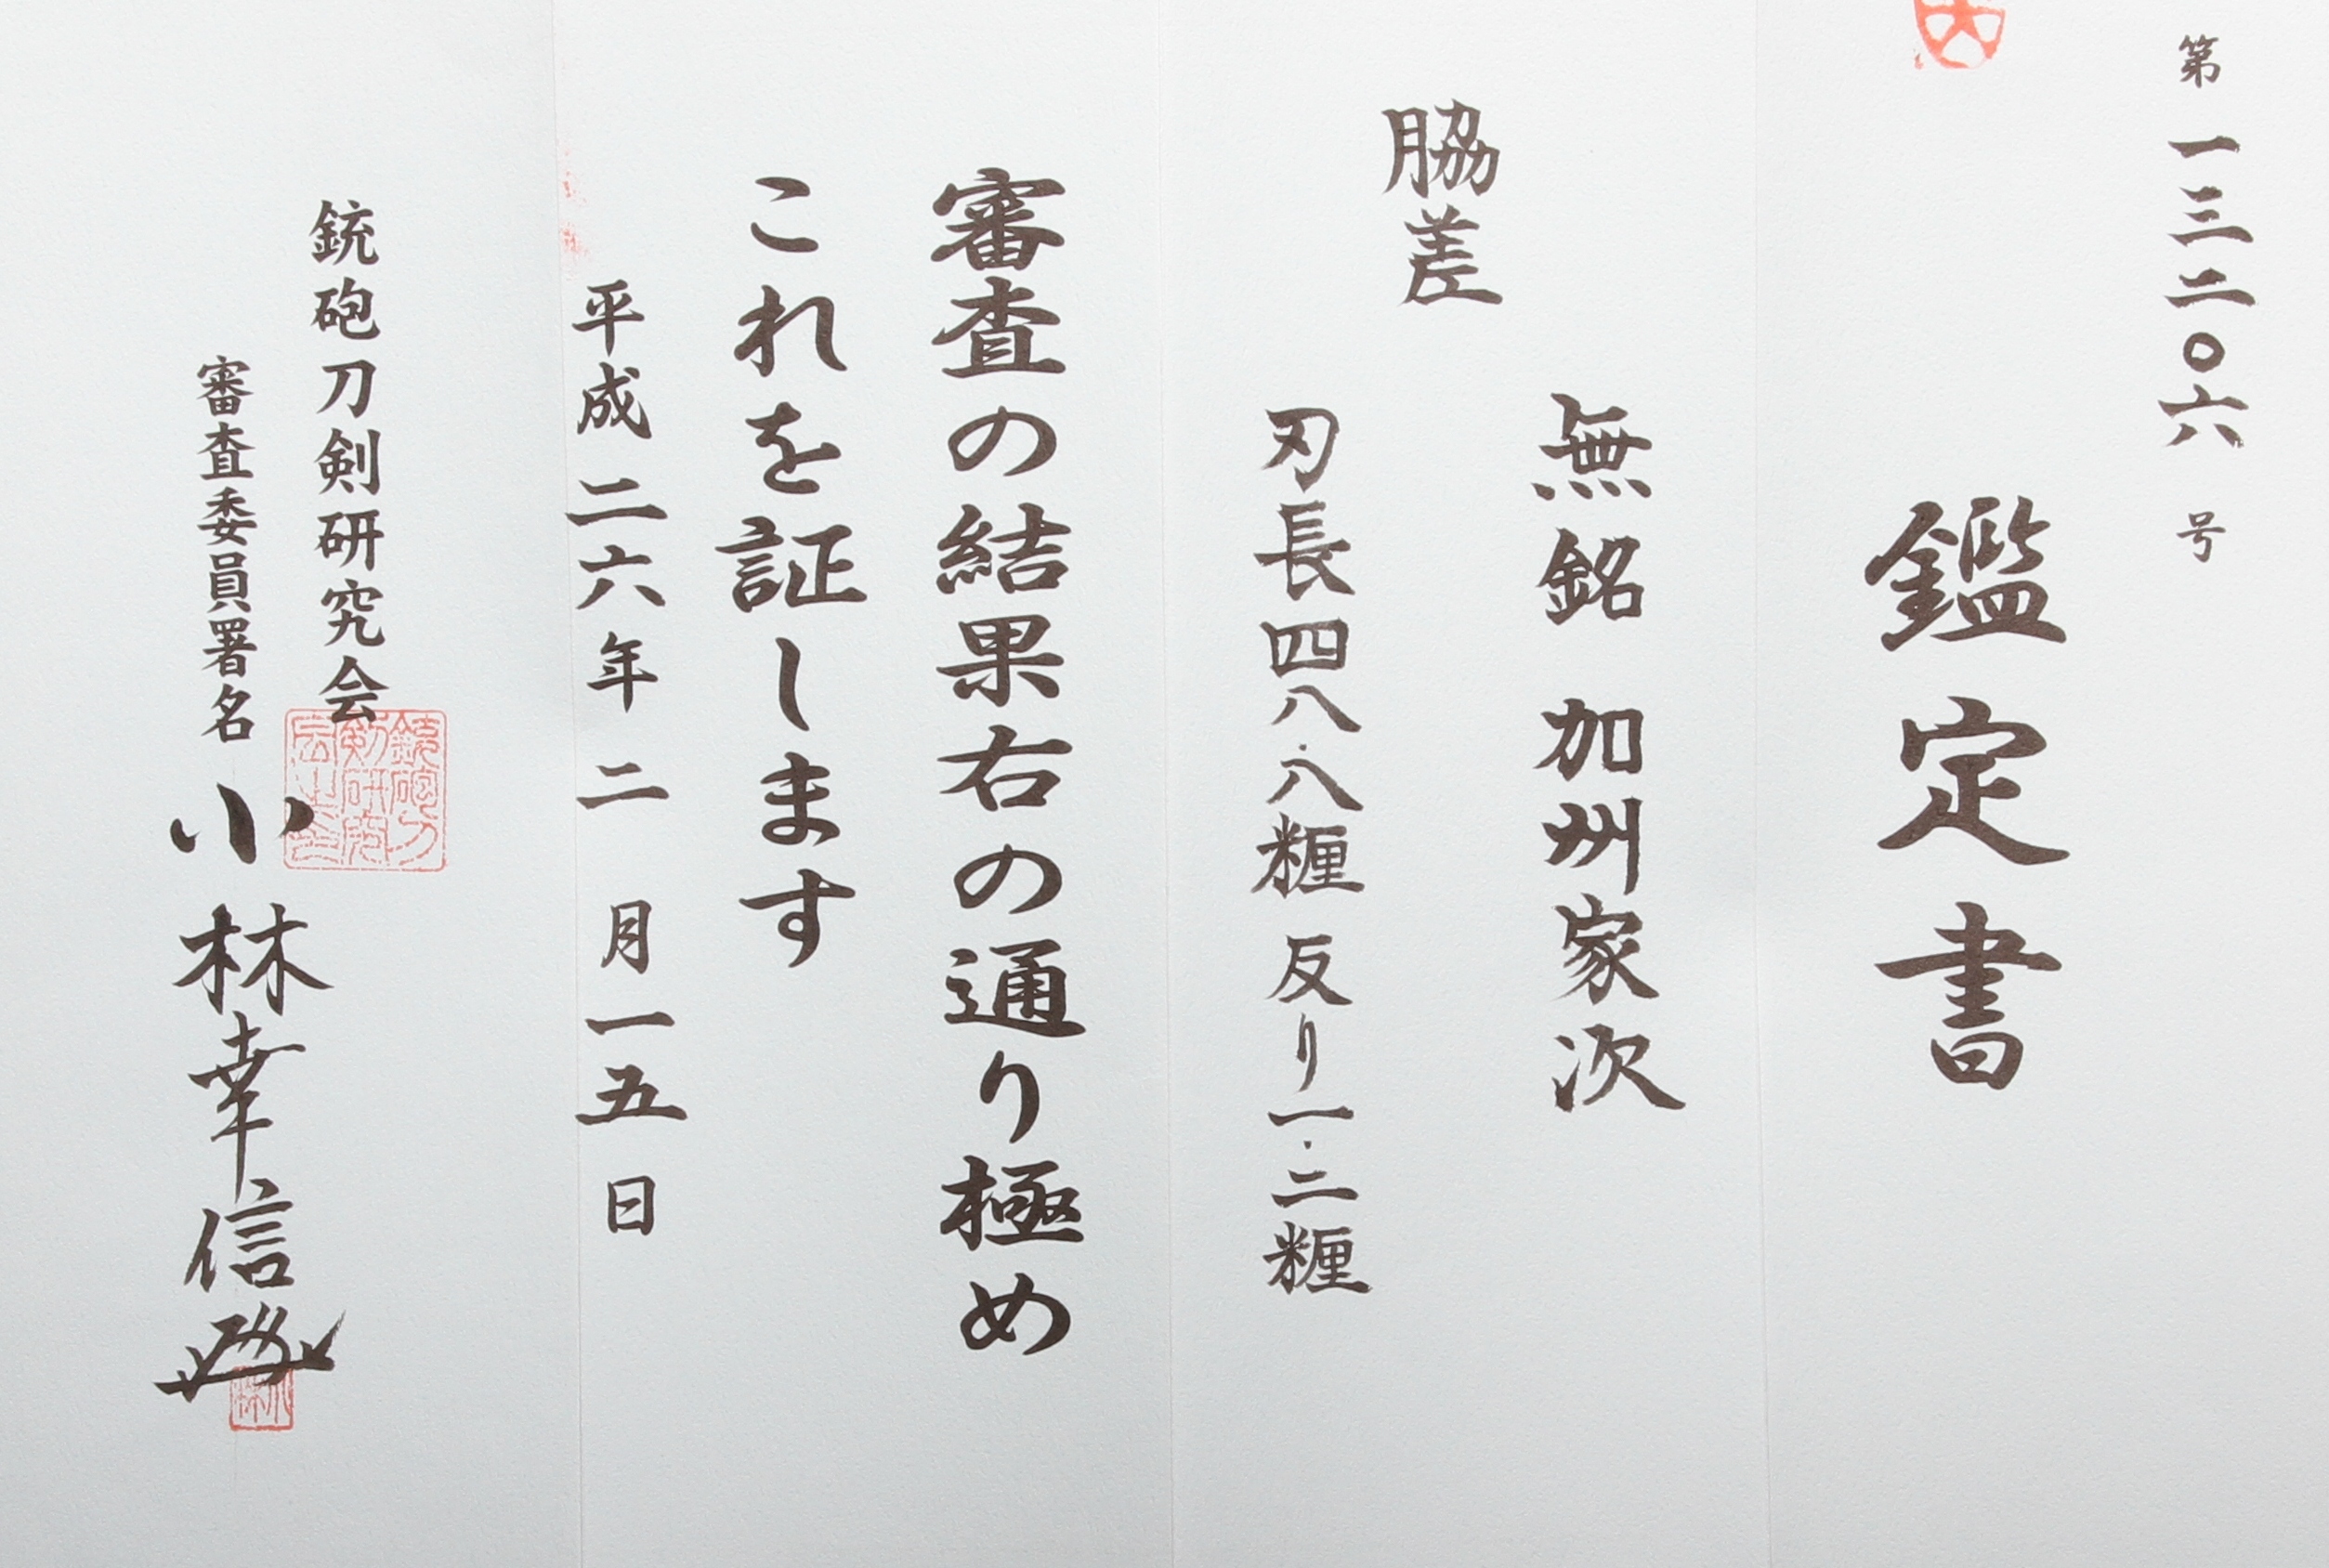 第一三二〇六号
鑑定書
無銘 加州家次
脇差
刃長四八.八糎 反り一.二糎
審査の結果右の通り極め
これを証します
平成二六年二月一五日
銃砲刀剣研究会
審査委員署名 小林幸信